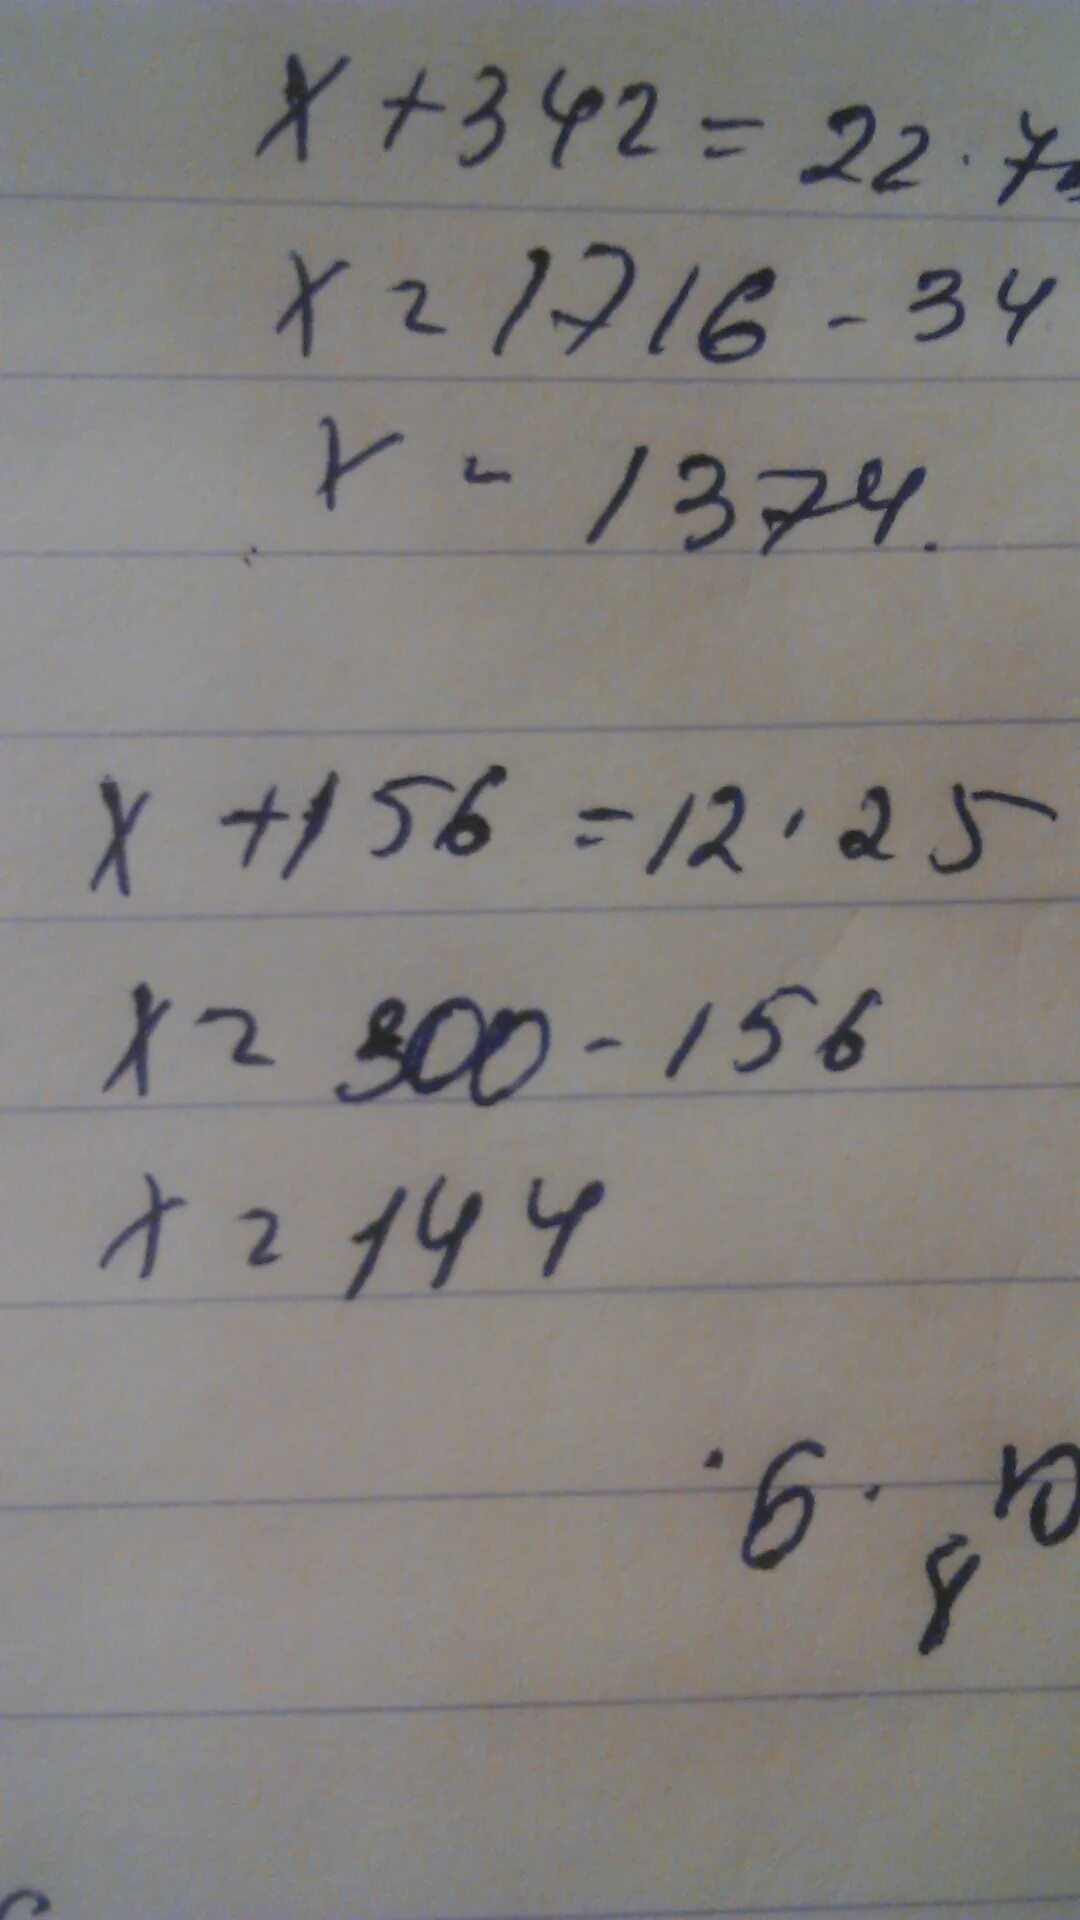 x + 342 = 22 · 7
x = 1716 - 34
x = 1374.
x + 156 = 12 · 25
x = 300 - 156
x = 144
· 6 ·
8